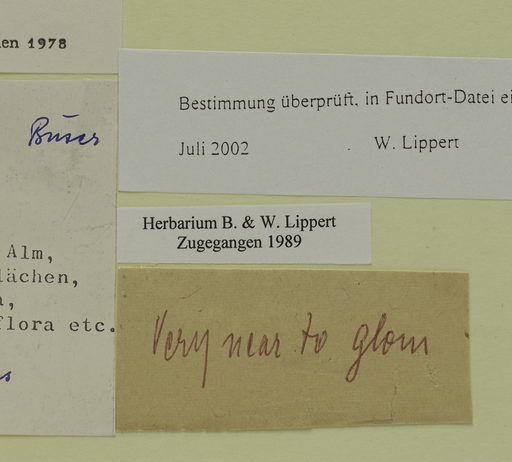 en 1978
Buser
Alm,
lächen,
flora etc.
Bestimmung überprüft, in Fundort-Datei ei
Juli 2002 W. Lippert
Herbarium B. & W. Lippert
Zugegangen 1989
Very near to glom